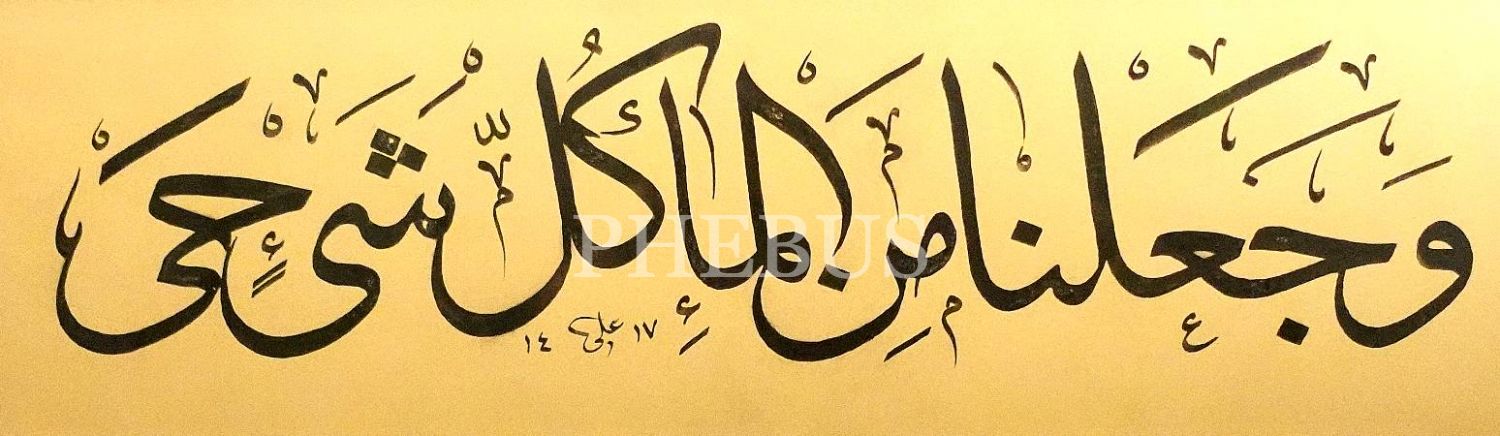 وَجَعَلْنَا مِنَ الْمَاءِ كُلَّ شَىْءٍ حَىٍّ
١٤ علي ١٧
PHEBUS